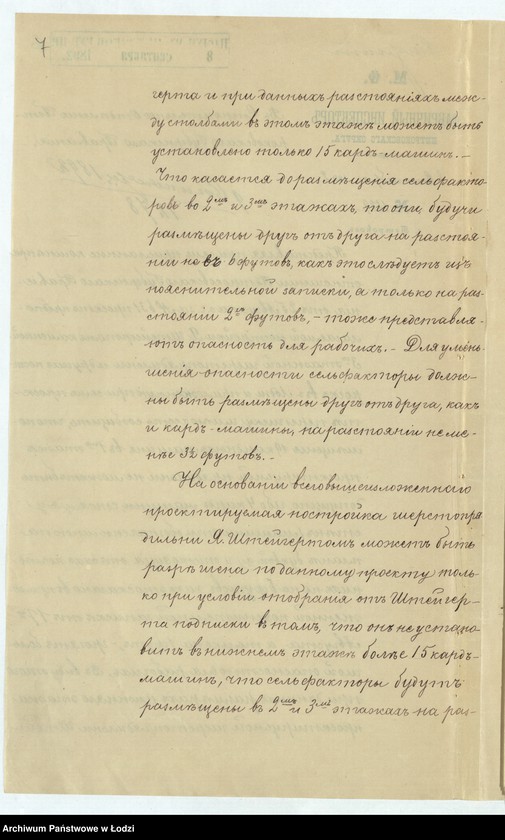 7
герта и при данныхъ разстоянiяхъ меж-
ду столбами въ этомъ этажѣ можетъ быть
установлено только 15 кардъ машинъ. -
Что касается до размѣщенiя сельфакто-
ровъ во 2мъ и 3мъ этажахъ, то они, будучи
размѣщены другъ отъ друга на разстоя-
нiи не въ 6 футовъ, какъ это слѣдуетъ изъ
пояснительной записки, а только на раз-
стоянiи 2хъ футовъ, - тоже представля-
ютъ опасность для рабочихъ. - Для умень-
шенiя опасности сельфакторы долж-
ны быть размѣщены другъ отъ друга, какъ
и кардъ-машины, на разстоянiи не ме-
нѣе 3½ футовъ. -
На основанiи всего вышеизложенного
проектируемая постройка шерстопря
дильни Я. Штейгертомъ можетъ быть
разрѣшена по данному проекту толь-
ко при условiи отобранiя отъ Штейгер-
та подписки въ томъ, что онъ не устано-
витъ въ нижнемъ этажѣ болѣе 15 кардъ-
машинъ, что сельфакторы будутъ
размѣщены въ 2мъ и 3мъ этажахъ на раз-
Archiwum Państwowe w Łodzi